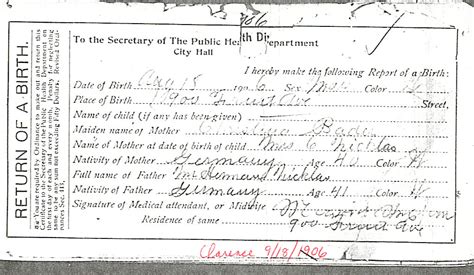 186
To the Secretary of The Public Health Department
City Hall
I hereby make the following Report of a Birth:
Date of Birth Aug 18 1906 Sex Male Color W
Place of Birth 900 Fruit Ave Street,
Name of child (if any has been given)
Maiden name of Mother Bade
Name of Mother at date of birth of child Mrs C Nicklas
Nativity of Mother Germany Age 40 Color W
Full name of Father Nicklas
Nativity of Father Germany Age 41 Color W
Signature of Medical attendant, or Midwife
Residence of same 900 Fruit Ave
Clarence 9/18/1906
RETURN OF A BIRTH.
You are required by Ordinance to make out and return this
Certificate to the Secretary of the Public Health Department on
the first day of each and every month. Penalty for neglecting
same to be a sum not exceeding Fifty Dollars. Revised Ordi-
nances Sec. 111.